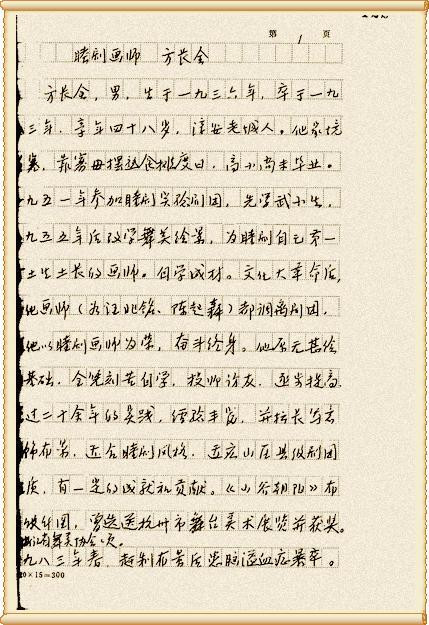 第 1 页
睦剧画师 方长全
方长全，男，生于一九三六年，卒于一九
三年，享年四十八岁，淳安老城人。他家境
寒，靠寡母摆述食摊度日，高小尚未毕业。
九五一年参加睦剧实验剧团，先学武小生，
九五五年后改学舞美绘景，为睦剧自己第一
土生土长的画师。自学成材。文化大革命后，
他画师（如汪兆铭、陈起舞）都调离剧团，
他以睦剧画师为荣，奋斗终身。他原无甚绘
基础，全凭刻苦自学，投师访友，逐步提高。
过二十余年的实践，经验丰富，并擅长写
布景，适合睦剧风格，适应山区县级剧团
质，有一定的成就和贡献。《山谷朝阳》布
图，曾选送杭州市舞台美术展览并获奖。
舞美协会
九八三年春，赶制布景后患脑溢血症暴卒。
20×15=300